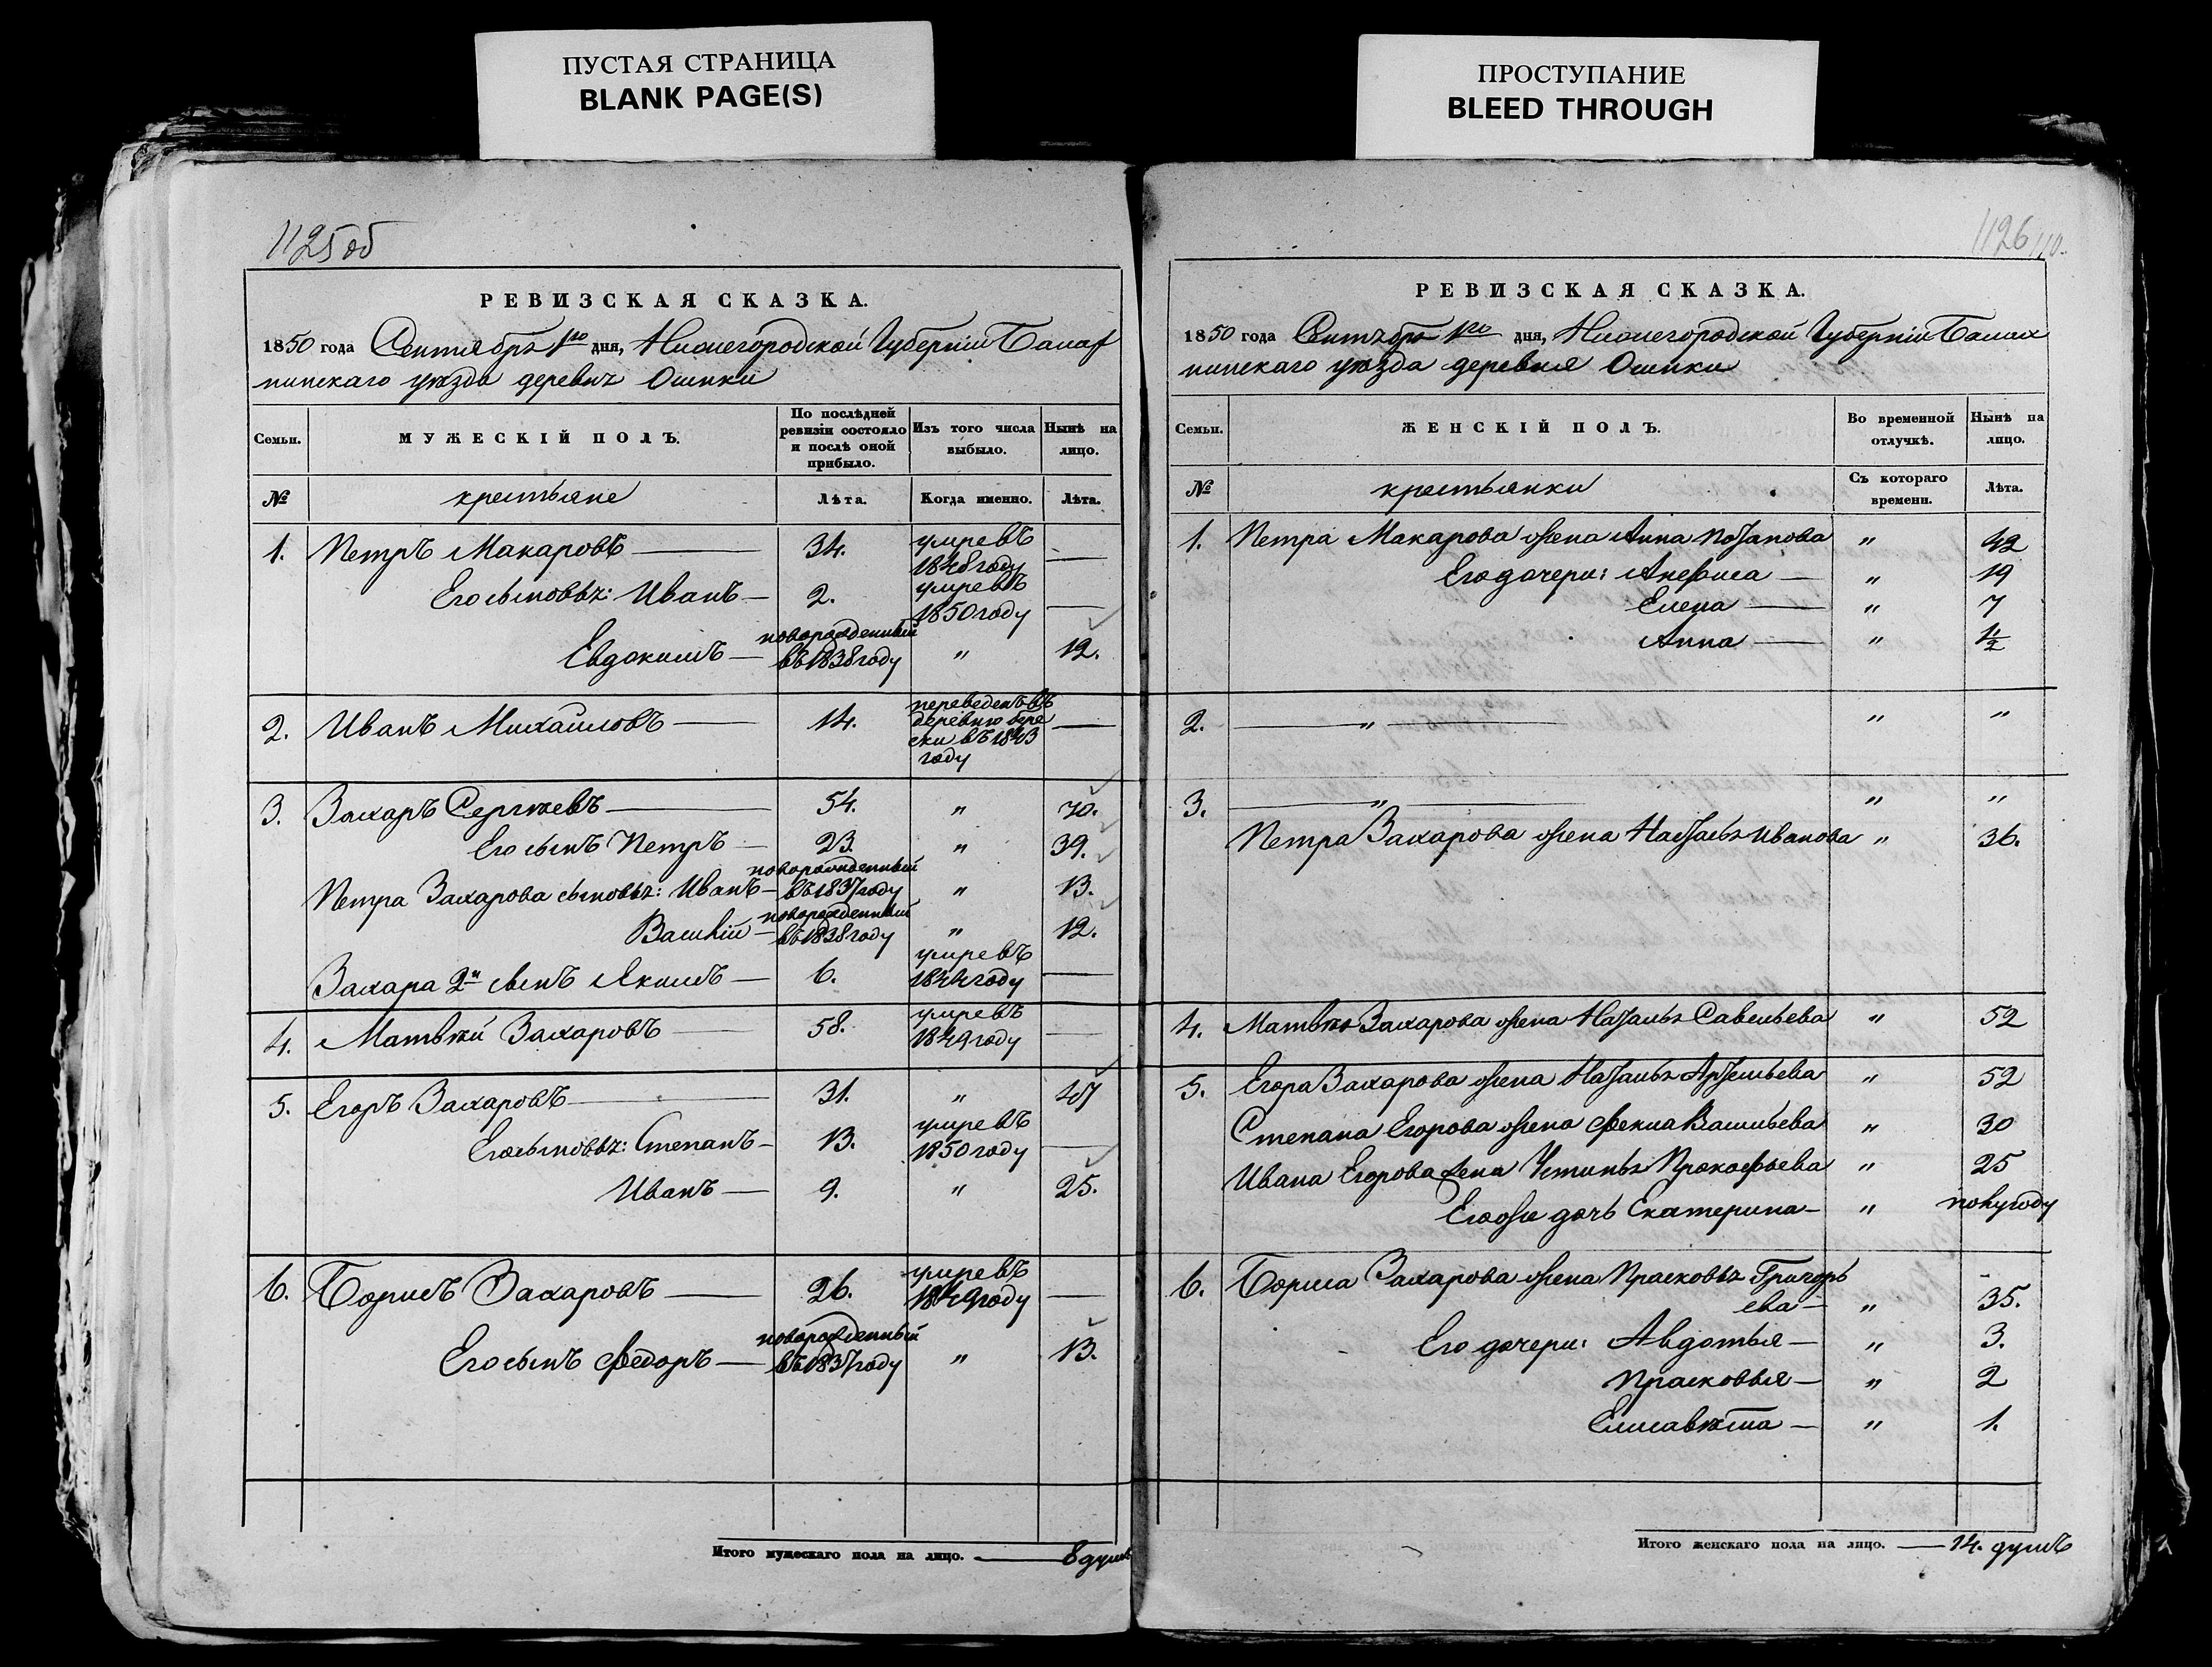 ПУСТАЯ СТРАНИЦА
BLANK PAGE(S)
ПРОСТУПАНИЕ
BLEED THROUGH
1125об
РЕВИЗСКАЯ СКАЗКА.
1850 года Сентября 1го дня, Нижегородской Губернiи Балах
нинскаго уѣзда деревнѣ Ошики
Семьи.
МУЖЕСКIЙ ПОЛЪ.
По послѣдней ревизiи состояло и послѣ оной прибыло.
Изъ того числа выбыло.
Нынѣ на лицо.
№
крестьяне
Лѣта.
Когда именно.
Лѣта.
1. Петръ Макаровъ — 34. умревъ 1848 году —
Его сыновья: Иванъ — 2. умревъ 1850 году —
Евдокимъ — новорожденный въ 1838 году " 12.
2. Иванъ Михайловъ — 14. переведенъ въ деревню в 1843 году —
3. Захаръ Сергѣевъ — 54. " 70.
Его сынъ Петръ — 23. " 39.
Петра Захарова сыновья: Иванъ — новорожденный въ 1837 году " 13.
Василiй — новорожденный въ 1838 году " 12.
Захара 2й сынъ Якимъ — 6. умревъ 1844 году —
4. Матвѣй Захаровъ — 58. умревъ 1849 году —
5. Егоръ Захаровъ — 31. " 47
Его сыновья: Степанъ — 13. умревъ 1850 году —
Иванъ — 9. " 25.
6. Борисъ Захаровъ — 26. умревъ 1849 году —
Его сынъ Федоръ — новорожденный въ 1837 году " 13.
Итого мужескаго пола на лицо. — 8 душъ
1126
110.
РЕВИЗСКАЯ СКАЗКА.
1850 года Сентября 1го дня, Нижегородской Губернiи Балах
нинскаго уѣзда деревня Ошики
Семьи.
ЖЕНСКIЙ ПОЛЪ.
Во временной отлучкѣ.
Нынѣ на лицо.
№
крестьянки
Съ котораго времени.
Лѣта.
1. Петра Макарова жена Анна Потапова " 42
Его дочери: Анфиса — " 19
Елена — " 7
Анна — " 1/2
2. — " — " "
3. — " — " "
Петра Захарова жена Настасья Иванова " 36.
4. Матвѣя Захарова жена Наталья Савельева " 52
5. Егора Захарова жена Наталья Артемьева " 52
Степана Егорова жена Фекла Васильева " 30
Ивана Егорова жена Устинья Прокофьева " 25
Егоже дочь Екатерина — " полугоду
6. Бориса Захарова жена Прасковья Григорь
ева — " 35.
Его дочери: Авдотья — " 3.
Прасковья — " 2
Елисавѣта — " 1.
Итого женскаго пола на лицо. — 14. душъ